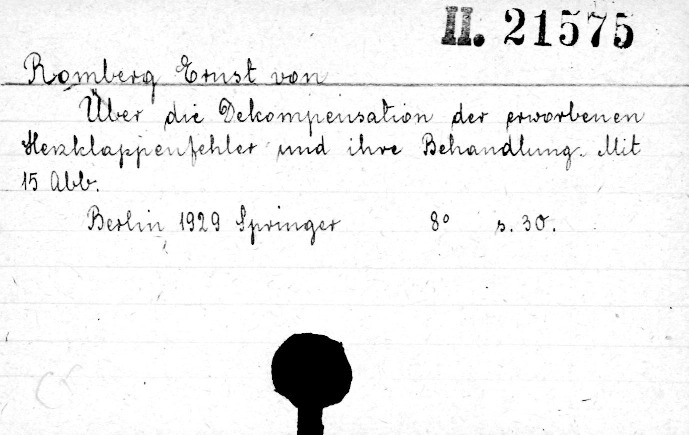 II. 21575
Romberg Ernst von
Über die Dekompensation der erworbenen
Herzklappenfehler und ihre Behandlung. Mit
15 Abb.
Berlin 1929 Springer 8° s. 30.